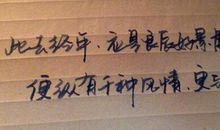 此去经年,应是良辰好景
便纵有千种风情,更